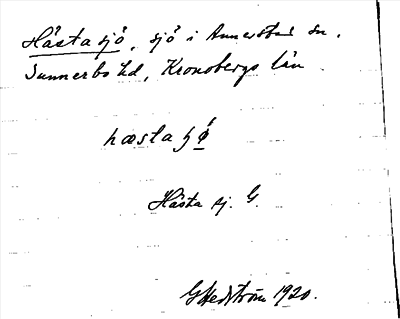 Hästasjö, sjö i Annerstad sn.
Sunnerbo hd, Kronobergs län
Hästa sj. G.
G Hedström 1920.